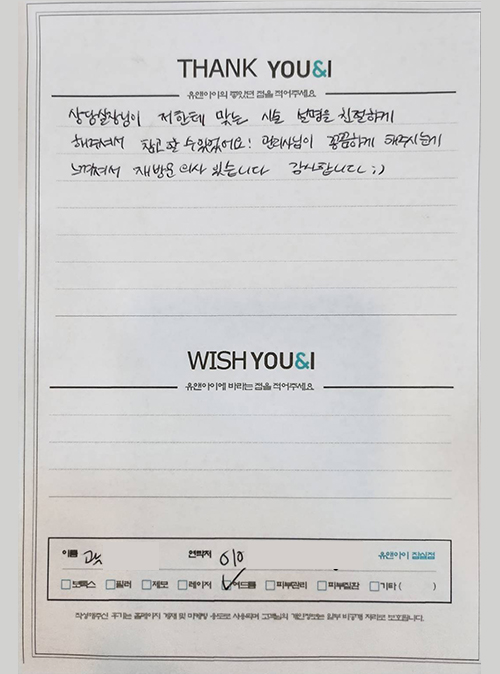 THANK YOU&I
유앤아이의 좋았던 점을 적어주세요
상담실장님이 저한테 맞는 시술 설명을 친절하게
해주셔서 참고할 수 있었어요! 관리사님이 꼼꼼하게 해주시는게
느껴져서 재방문 의사 있습니다 감사합니다 ;)
WISH YOU&I
유앤아이에 바라는 점을 적어주세요
이름 연락처 010 유앤아이 잠실점
보톡스 필러 제모 레이저 여드름 피부관리 피부질환 기타 ( )
작성해주신 후기는 홈페이지 게재 및 마케팅 용도로 사용되며 고객님의 개인정보는 일부 비공개 처리로 보호됩니다.